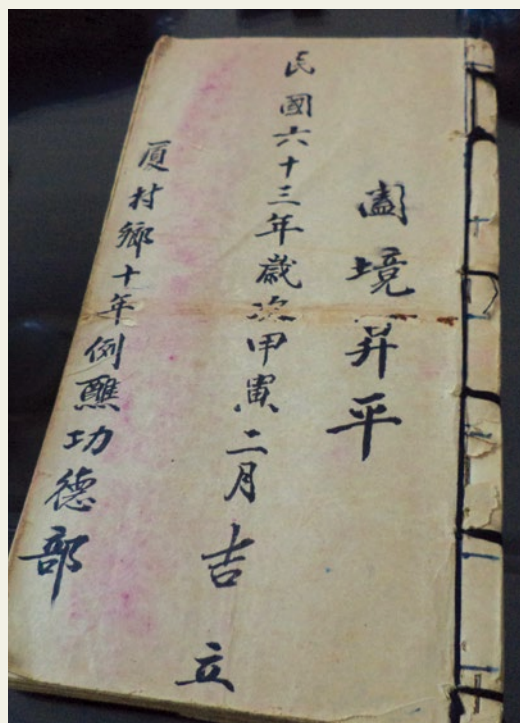 闔境昇平
民國六十三年歲次甲寅二月吉立
厦村鄉十年例醮功德部